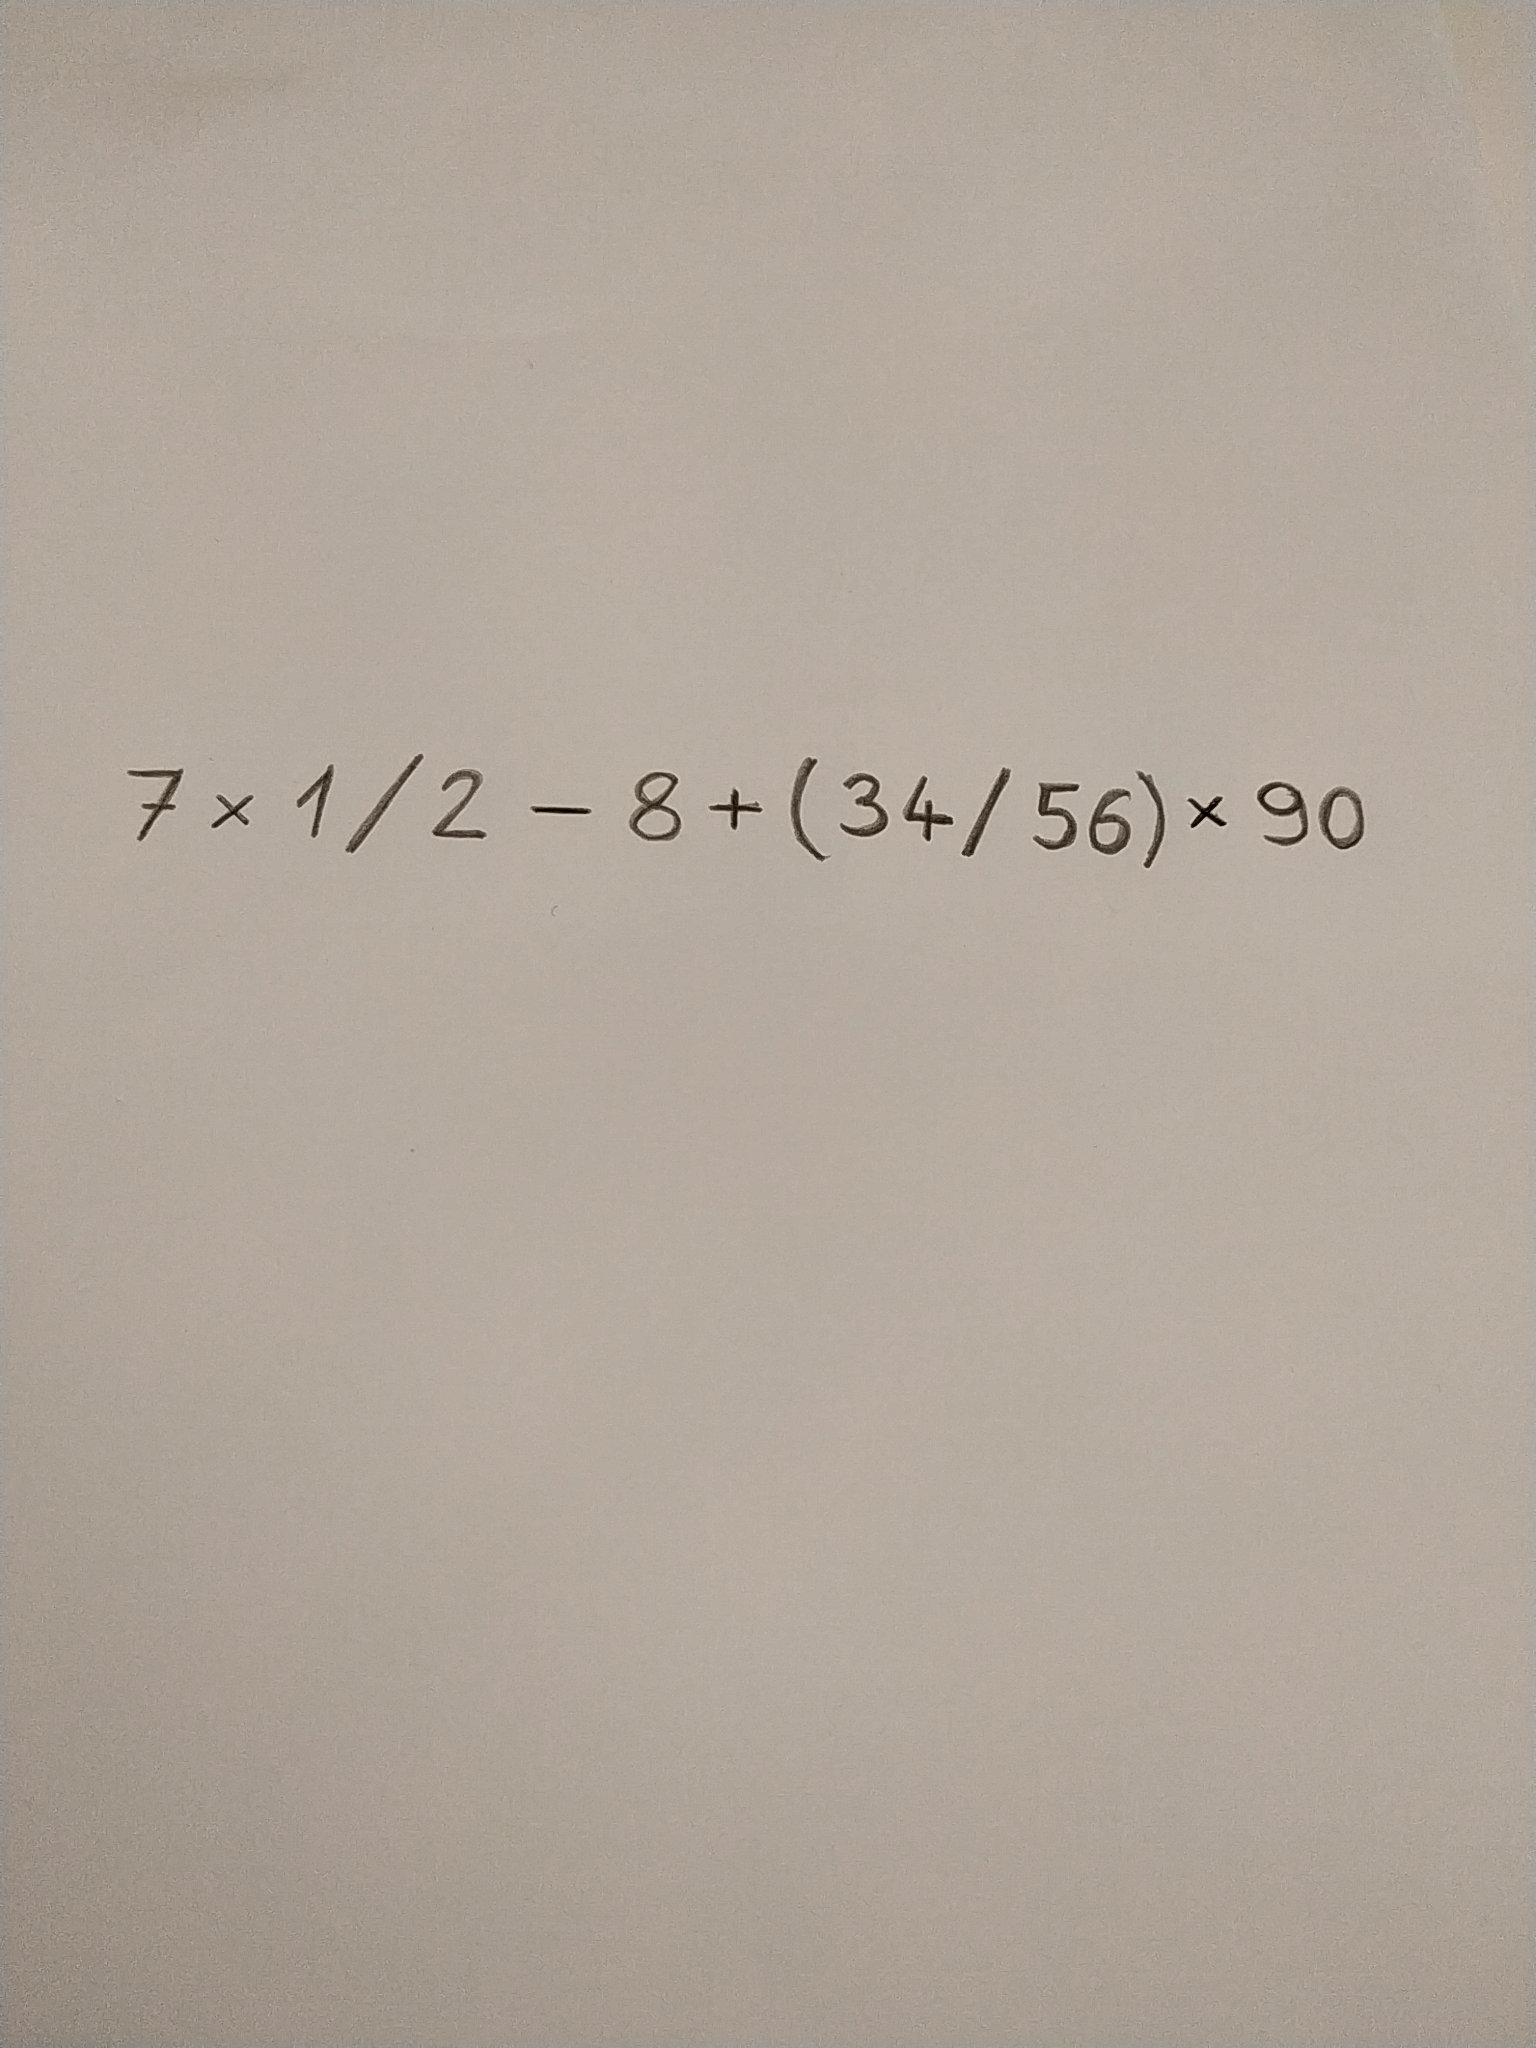 7 × 1/2 – 8 + (34/56) × 90